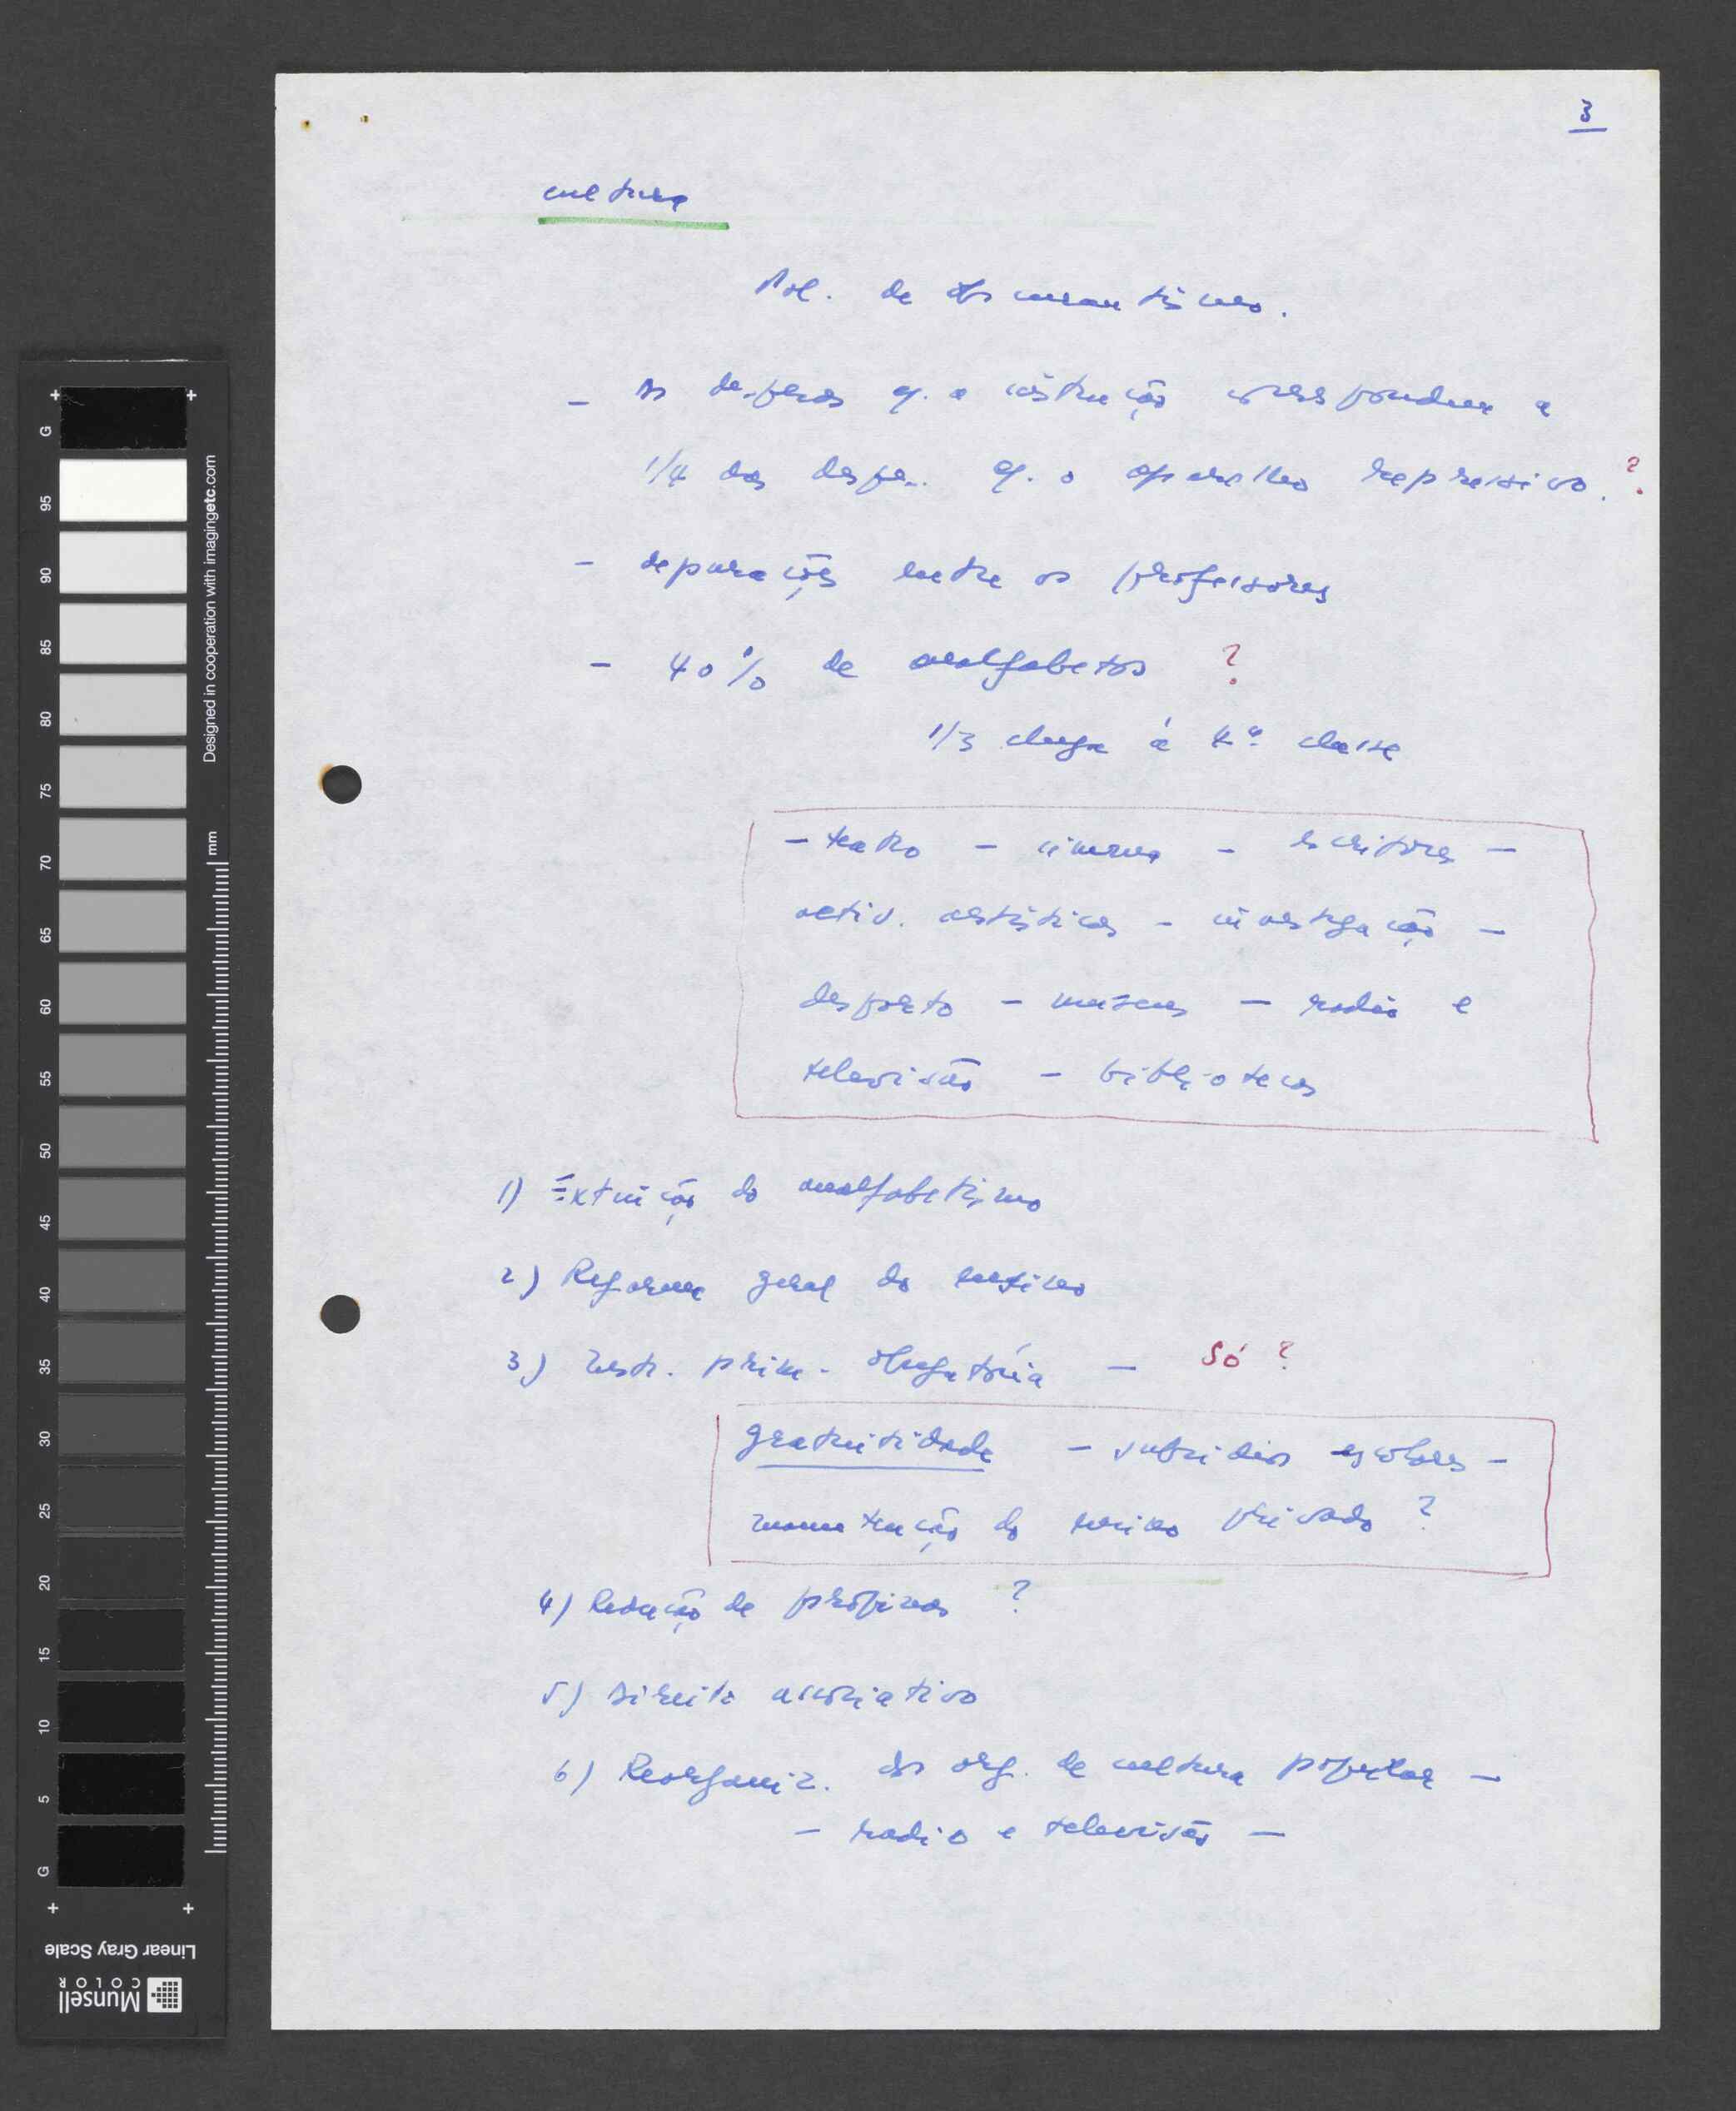 3
cultura
Pol. de obscurantismo.
- As despesas c. a instrução correspondem a
1/4 das despe.. c. o aparelho repressivo. ?
- depurações entre os professores
- 40% de analfabetos ?
1/3 chega à 4ª classe
- teatro - cinema - escritores -
activ. artísticas - investigação -
desporto - museus - radio e
televisão - bibliotecas
1) Extinção do analfabetismo
2) Reforma geral do ensino
3) Instr. prim. obrigatória - Só ?
gratuitidade - subsidios escolares -
manutenção do ensino privado ?
4) Redução de propinas ?
5) Direito associativo
6) Reorganiz. das org. de cultura popular -
- radio e televisão -
G
95
90
85
80
75
70
65
60
55
50
45
40
35
30
25
20
15
10
5
G
Designed in cooperation with imagingetc.com
mm
Linear Gray Scale
Munsell
COLOR